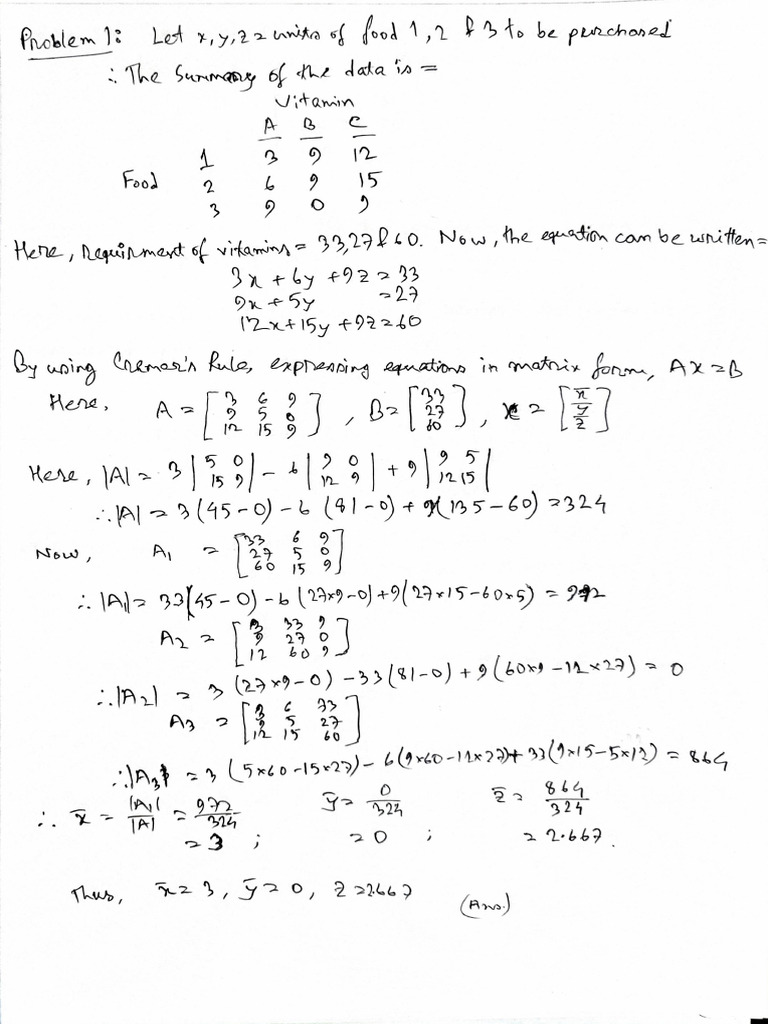 Problem 1: Let x, y, z = units of food 1, 2 & 3 to be purchased
∴ The Summary of the data is =
Vitamin
A B C
1 3 9 12
Food 2 6 9 15
3 9 0 9
Here, requirment of vitamins = 33, 27 & 60. Now, the equation can be written =
3x + 6y + 9z = 33
9x + 5y = 27
12x + 15y + 9z = 60
By using Cremer's Rule, expressing equations in matrix form, AX = B
Here, A = [3 6 9; 9 5 0; 12 15 9], B = [33; 27; 60], x = [x̄; ȳ; z̄]
Here, |A| = 3 |5 0; 15 9| - 6 |9 0; 12 9| + 9 |9 5; 12 15|
∴ |A| = 3 (45 - 0) - 6 (81 - 0) + 9 (135 - 60) = 324
Now, A₁ = [33 6 9; 27 5 0; 60 15 9]
∴ |A₁| = 33 (45 - 0) - 6 (27×9 - 0) + 9 (27×15 - 60×5) = 972
A₂ = [3 33 9; 9 27 0; 12 60 9]
∴ |A₂| = 3 (27×9 - 0) - 33 (81 - 0) + 9 (60×9 - 12×27) = 0
A₃ = [3 6 33; 9 5 27; 12 15 60]
∴ |A₃| = 3 (5×60 - 15×27) - 6 (9×60 - 12×27) + 33 (9×15 - 5×12) = 864
∴ x̄ = |A₁|/|A| = 972/324 ȳ = 0/324 z̄ = 864/324
= 3 ; = 0 ; = 2.667.
Thus, x̄ = 3, ȳ = 0, z = 2.667 (Ans.)